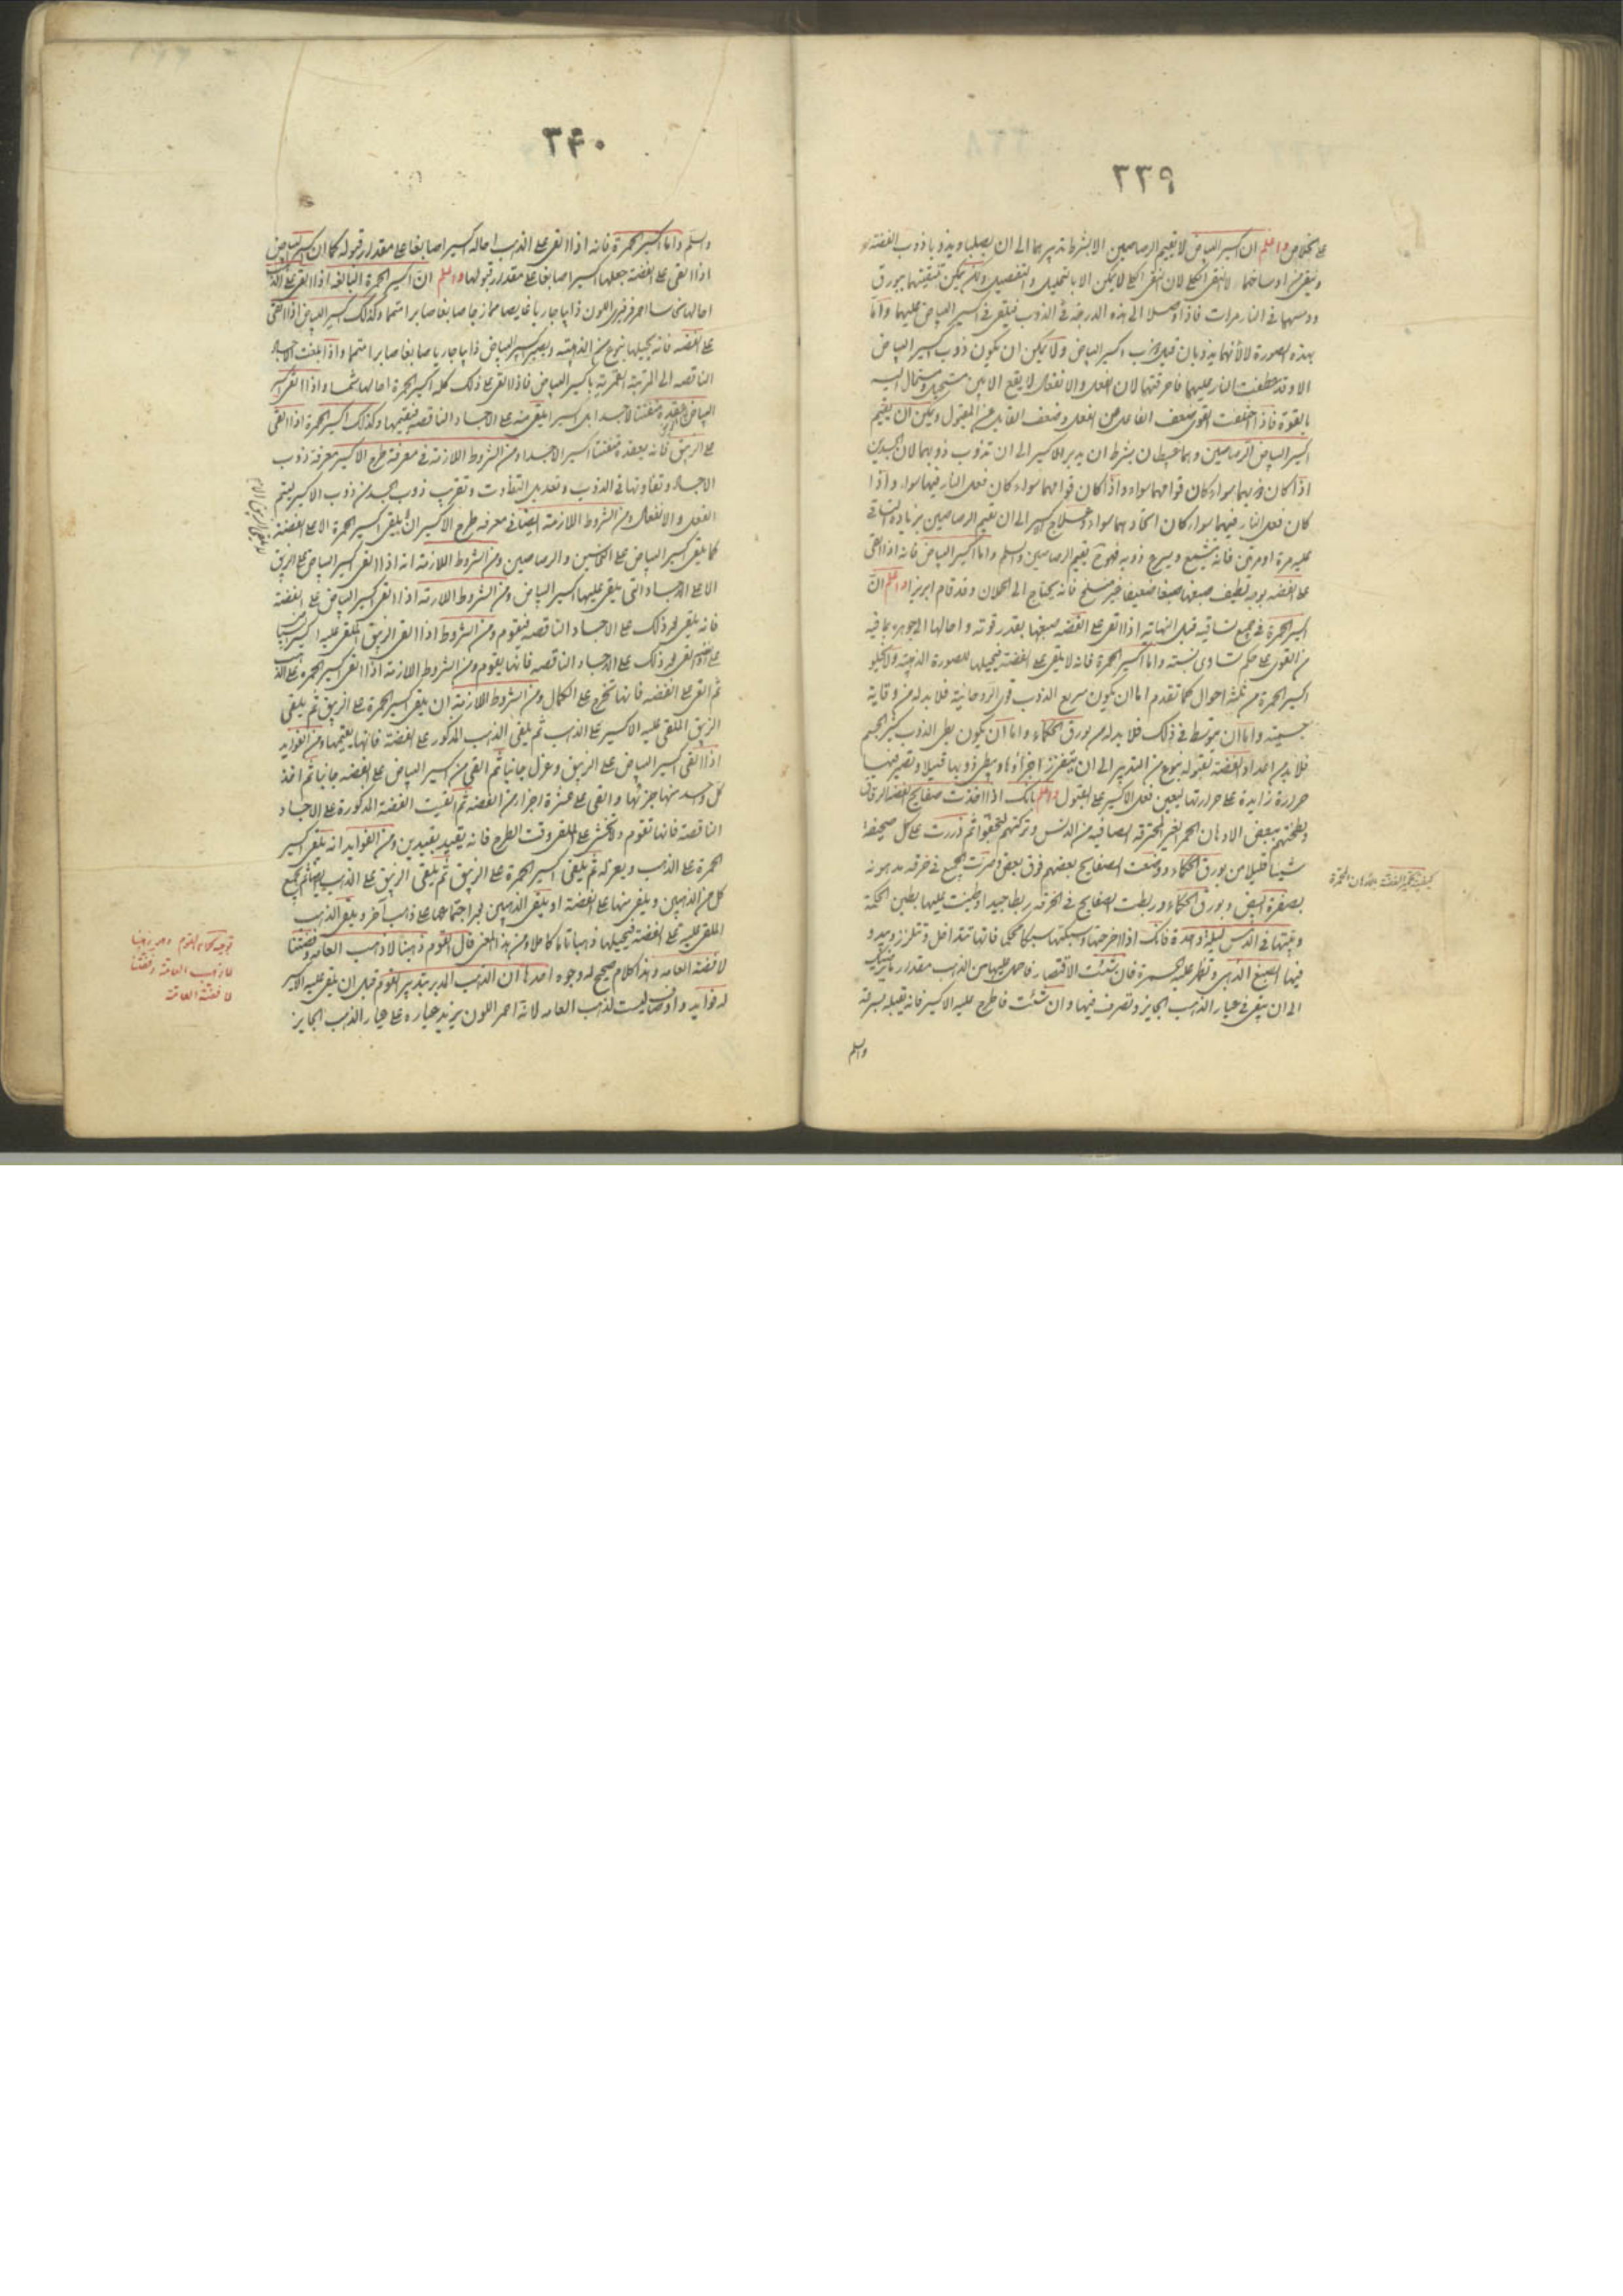 ٣٣٩
على الخلاص واعلم ان اكسير البياض لا يقيم الرصاصين الا بشرط تدبيرهما الى ان يصلبا ويذوبا ذوب الفضة
وينقى من اوساخهما لا النقى الكلى لان النقى الكلى لا يمكن الا بالتحليل والتفصيل ولكن يمكن تنقيتهما ببورق
ودسهما فى النار مرات فاذا وصلا الى هذه الدرجة فى الذوب فيلقى اكسير البياض عليهما واما
بهذه الصورة لانهما يذوبان قبل ذوب اكسير البياض ولا يمكن ان يكون ذوب اكسير البياض
الا وقد عطفت النار عليهما فاحرقتهما لان الفعل والانفعال لا يقع الا بين مستحيل ومستحال اليه
بالقوة فاذا ضعفت القوى ضعف الفاعل عن الفعل وضعف القابل عن القبول ويمكن ان يقيم
اكسير البياض الرصاصين وهما عبيطان بشرط ان يدبر الاكسير الى ان تذوب ذوبهما لان الجسدين
اذا كان ذوبهما سواء كان قوامهما سواء واذا كان قوامهما سواء كان فعل النار فيهما سواء واذا
كان فعل النار فيهما سواء كان اتحادهما سواء وعلاج اكسير الى ان تقيم الرصاصين بزيادة التساقى
عليه مرة او مرتين فانه يتشمع ويسرع ذوبه فهو يقيم الرصاصين واعلم واما اكسير البياض فانه اذا القى
على الفضة بوجه لطيف صبغها صبغا ضعيفا غير منسلخ فانه يحتاج الى الحملان وقد قام ابريزا واعلم ان
اكسير الحمرة فى جميع تساقيه قبل النهاية اذا القى على الفضة صبغها بقدر قوته واحالها الى جوهره بما فيه
من القوى على حكم تساوى نسبته واما اكسير الحمرة فانه لا يلقى على الفضة فيحيلها للصورة الذهبية ولا يخلو
اكسير الحمرة من ثلثة احوال كما تقدم اما ان يكون سريع الذوب قوى الروحانية فلا بد له من وقاية
جسمية واما ان متوسط فى ذلك فلا بد له من بورق الحكماء واما ان يكون بطى الذوب كثير الجسم
فلا بد من اعداد الفضة لقبوله بنوع من التدبير الى ان يتفرز اجزاؤها ويبطى ذوبها قليلا وتصير فيها
حرارة زايدة على حرارتها ليعين فعل الاكسير على القبول واعلم بانك اذا اخذت صفايح الفضة الرقاق
ولطختهم ببعض الادهان الحمر الغير المحترقة الصافية من الدنس وتركتهم ليجفوا ثم ذررت على كل صحيفة
شيئا قليلا من بورق الحكماء ووضعت الصفايح بعضهم فوق بعض وصررت الجميع فى خرقة مدهونة
بصفرة البيض وبورق الحكماء وربطت الصفايح فى الخرقة ربطا جيدا وطينت عليها بطين الحكمة
وبيتها فى الدمس ليلة واحدة فانك اذا اخرجتها وسبكتها سبكا محكما فانها تتداخل وتتلزز ويبدو
فيها الصبغ الذهبى وتظهر عليه الحمرة فان شئت الاقتصار فاحمل عليها من الذهب مقدار ما يزيد
الى ان يبقى فى عيار الذهب الجايز وتصرف فيها وان شئت فاطرح عليه الاكسير فانه يقبله بسرعة
واعلم
كيفية تحمير الفضة بالادهان المحمرة
٣٤٠
واعلم واما اكسير الحمرة فانه اذا القى على الذهب احاله اكسيرا صابغا على مقدار قبوله كما ان اكسير البياض
اذا القى على الفضة جعلها اكسيرا صابغا على مقدار قبولها واعلم ان اكسير الحمرة البالغه اذا القى على الذهب
احالها نحاسا احمر فرفيرى اللون ذايبا جاريا غايصا ممازجا صابغا صابرا متمما وكذلك اكسير البياض اذا القى
على الفضة فانه يحيلها بنوع من الذهبية ويصير اكسير البياض ذايبا جاريا صابغا صابرا متمما واذا بلغت الاجساد
الناقصة الى المرتبة القمرية باكسير البياض فاذا القى على ذلك كله اكسير الحمرة احالها شمسا واذا القى اكسير
البياض على الزيبق عقده متفتتا لاجسد ابل اكسيرا يلقى منه على الاجساد الناقصة فيقيمها وكذلك اكسير الحمرة اذا القى
على الزيبق فانه يعقده متفتتا اكسير الاجساد ومن الشروط اللازمة فى معرفة طرح الاكسير معرفة ذوب
الاجساد وتفاوتها فى الذوب وتعديل التفاوت وتقريب ذوب الجسد من ذوب الاكسير ليتم
الفعل والانفعال ومن الشروط اللازمة ايضا فى معرفة طرح الاكسير ان يلقى اكسير الحمرة الا على الفضة
كما يلقى اكسير البياض على النحاسين والرصاصين ومن الشروط اللازمة انه اذا القى اكسير البياض على الزيبق
الا على الاجساد التى يلقى عليها اكسير البياض ومن الشروط اللازمة اذا القى اكسير البياض على الفضة
فانه يلقى بعد ذلك على الاجساد الناقصة فيقوم ومن الشروط اذا القى الزيبق الملقى عليه اكسير البياض
على الفضة ثم القى بعد ذلك على الاجساد الناقصة فانها يقوم ومن الشروط اللازمة اذا القى اكسير الحمرة على الذهب
ثم القى على الفضة فانها تخرج على الكمال ومن الشروط اللازمة ان يلقى اكسير الحمرة على الزيبق ثم يلقى
الزيبق الملقى عليه الاكسير على الذهب ثم يلقى الذهب المذكور على الفضة فانها يقيمها ومن الفوايد
اذا القى اكسير البياض على الزيبق وعزل جانبا ثم القى من اكسير البياض على الفضة جانبا ثم اخذ
كل واحد منهما جزئها والقى على عشرة اجزاء من الفضة ثم القيت الفضة المذكورة على الاجساد
الناقصة فانها تقوم ولا تخش على الملقى وقت الطرح فانه يقيد بقيدين ومن الفوايد انه يلقى اكسير
الحمرة على الذهب ويعزله ثم يلقى اكسير الحمرة على الزيبق ثم يلقى الزيبق على الذهب ايضا ثم يجمع
كل من الذهبين ويلقى منها على الفضة او يلقى الذهبين بعد اجتماعهما على ذهب آخر ويلقى الذهب
الملقى عليه على الفضة فيحيلها ذهبا تاما كاملا ومن هذا المعنى قال القوم ذهبنا لا ذهب العامه وفضتنا
لا فضة العامه وهذا كلام صحيح له وجوه احدها ان الذهب المدبر بتدبير القوم قبل ان يلقى عليه الاكسير
له فوايد واوصاف ليست لذهب العامه لانه احمر اللون يزيد عياره على عيار الذهب الجايز
توجيه كلام القوم وهو ذهبنا
لا ذهب العامة وفضتنا
لا فضة العامة